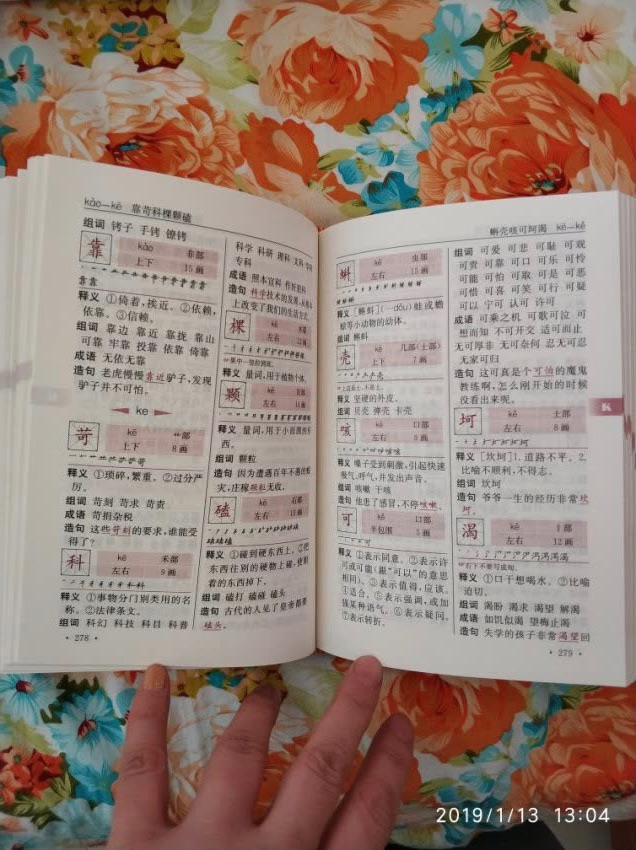 kào—kē 靠苛科棵颗磕
组词 铐子 手铐 镣铐
靠 kào 非部
上下 15画
靠靠
释义 ①倚着,挨近。②依赖,
依靠。③信赖。
组词 靠边 靠近 靠拢 靠山
可靠 牢靠 投靠 依靠 倚靠
成语 无依无靠
造句 老虎慢慢靠近驴子,发现
驴子并不可怕。
ke
苛 kē 艹部
上下 8画
释义 ①琐碎,繁重。②过分严
厉。
组词 苛刻 苛求 苛责
成语 苛捐杂税
造句 这些苛刻的要求,谁能受
得了?
科 kē 禾部
左右 9画
释义 ①事物分门别类用的名
称。②法律条文。
组词 科幻 科技 科目 科普
· 278 ·
科学 科研 理科 文科 学科
专科
成语 照本宣科 作奸犯科
造句 科学技术的发展,从根本
上改变了我们的生活方式。
棵 kē 木部
左右 12画
释义 量词,用于植物个体。
颗 kē 页部
左右 14画
释义 量词,用于小而圆的东
西。
组词 颗粒
造句 因为遭遇百年不遇的蝗
灾,庄稼颗粒无收。
磕 kē 石部
左右 15画
磕磕磕磕
释义 ①碰到硬东西上。②把
东西往别的硬物上碰,使附
着的东西掉下。
组词 磕打 磕碰 磕头
造句 古代的人见了皇帝都要
磕头。
蝌壳咳可坷渴 kē—kě
蝌 kē 虫部
左右 15画
释义 [蝌蚪](—dǒu)蛙或蟾
蜍等小动物的幼体。
组词 蝌蚪
壳 ké 几部(士部)
上下 7画
释义 坚硬的外皮。
组词 贝壳 弹壳 卡壳
咳 ké 口部
左右 9画
释义 嗓子受到刺激,引起快速
吸气、呼气,并发出声音。
组词 咳嗽 干咳
造句 他患了感冒,不停咳嗽。
可 kě 口部
半包围 5画
释义 ①表示同意。②表示许
可或可能(跟“可以”的意思
相同)。③表示值得,应该。
④适合。⑤表示强调,或加
强某种语气。⑥表示疑问。
⑦表示转折。
组词 可爱 可悲 可耻 可观
可贵 可靠 可口 可乐 可怜
可能 可怕 可取 可是 可恶
可惜 可喜 可笑 可行 可疑
可以 宁可 认可 许可
成语 可乘之机 可歌可泣 可
想而知 不可开交 适可而止
无可厚非 无可奈何 忍无可忍
无家可归
造句 这可真是个可怕的魔鬼
教练啊,怎么刚开始的时候
没看出来呢。
K
坷 kě 土部
左右 8画
释义 [坎坷]1.道路不平。2.
比喻不顺利,不得志。
组词 坎坷
造句 爷爷一生的经历非常坎
坷。
渴 kě 氵部
左右 12画
释义 ①口干想喝水。②比喻
迫切。
组词 渴盼 渴求 渴望 解渴
成语 如饥似渴 望梅止渴
造句 失学的孩子非常渴望回
· 279 ·
2019/1/13 13:04